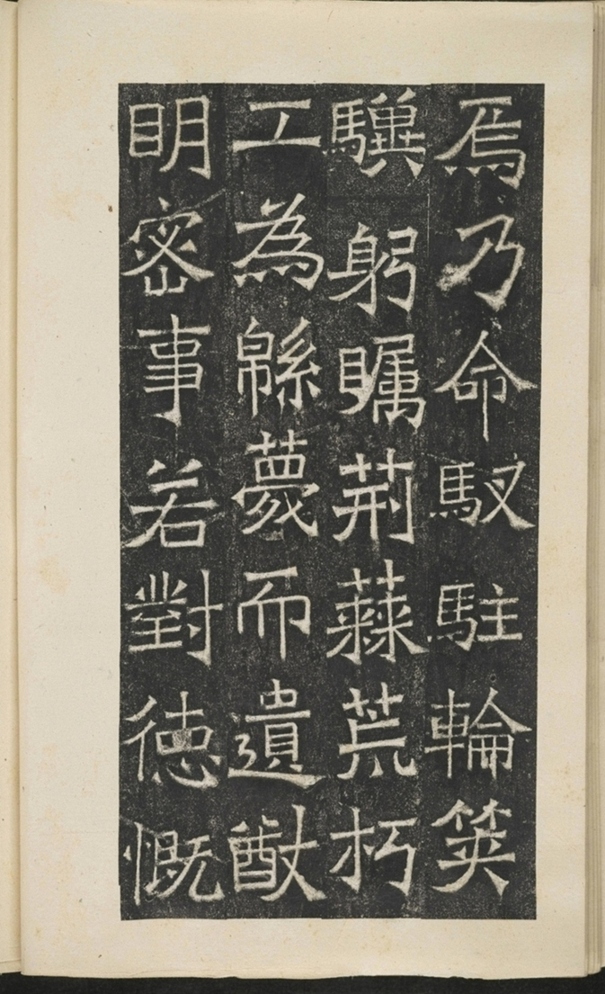 焉乃命馭駐輪筴
驥躬矚荊蕀荒朽
工為緜蔑而遺猷
明密事若對徳慨